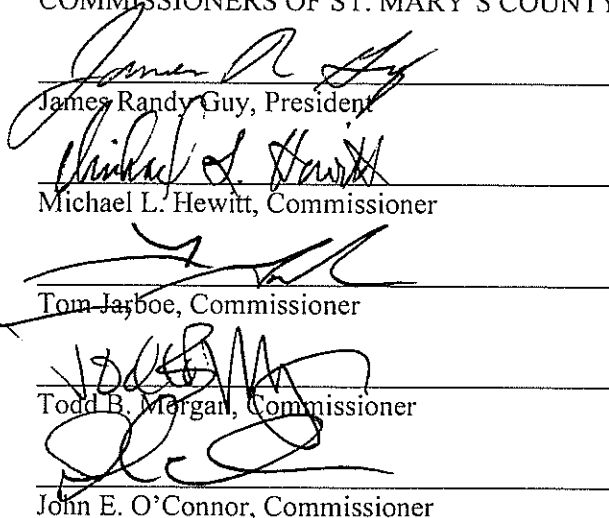 COMMISSIONERS OF ST. MARY'S COUNTY
James R Guy
James Randy Guy, President
Michael L. Hewitt
Michael L. Hewitt, Commissioner
Tom Jarboe, Commissioner
Todd B. Morgan, Commissioner
John E. O'Connor, Commissioner